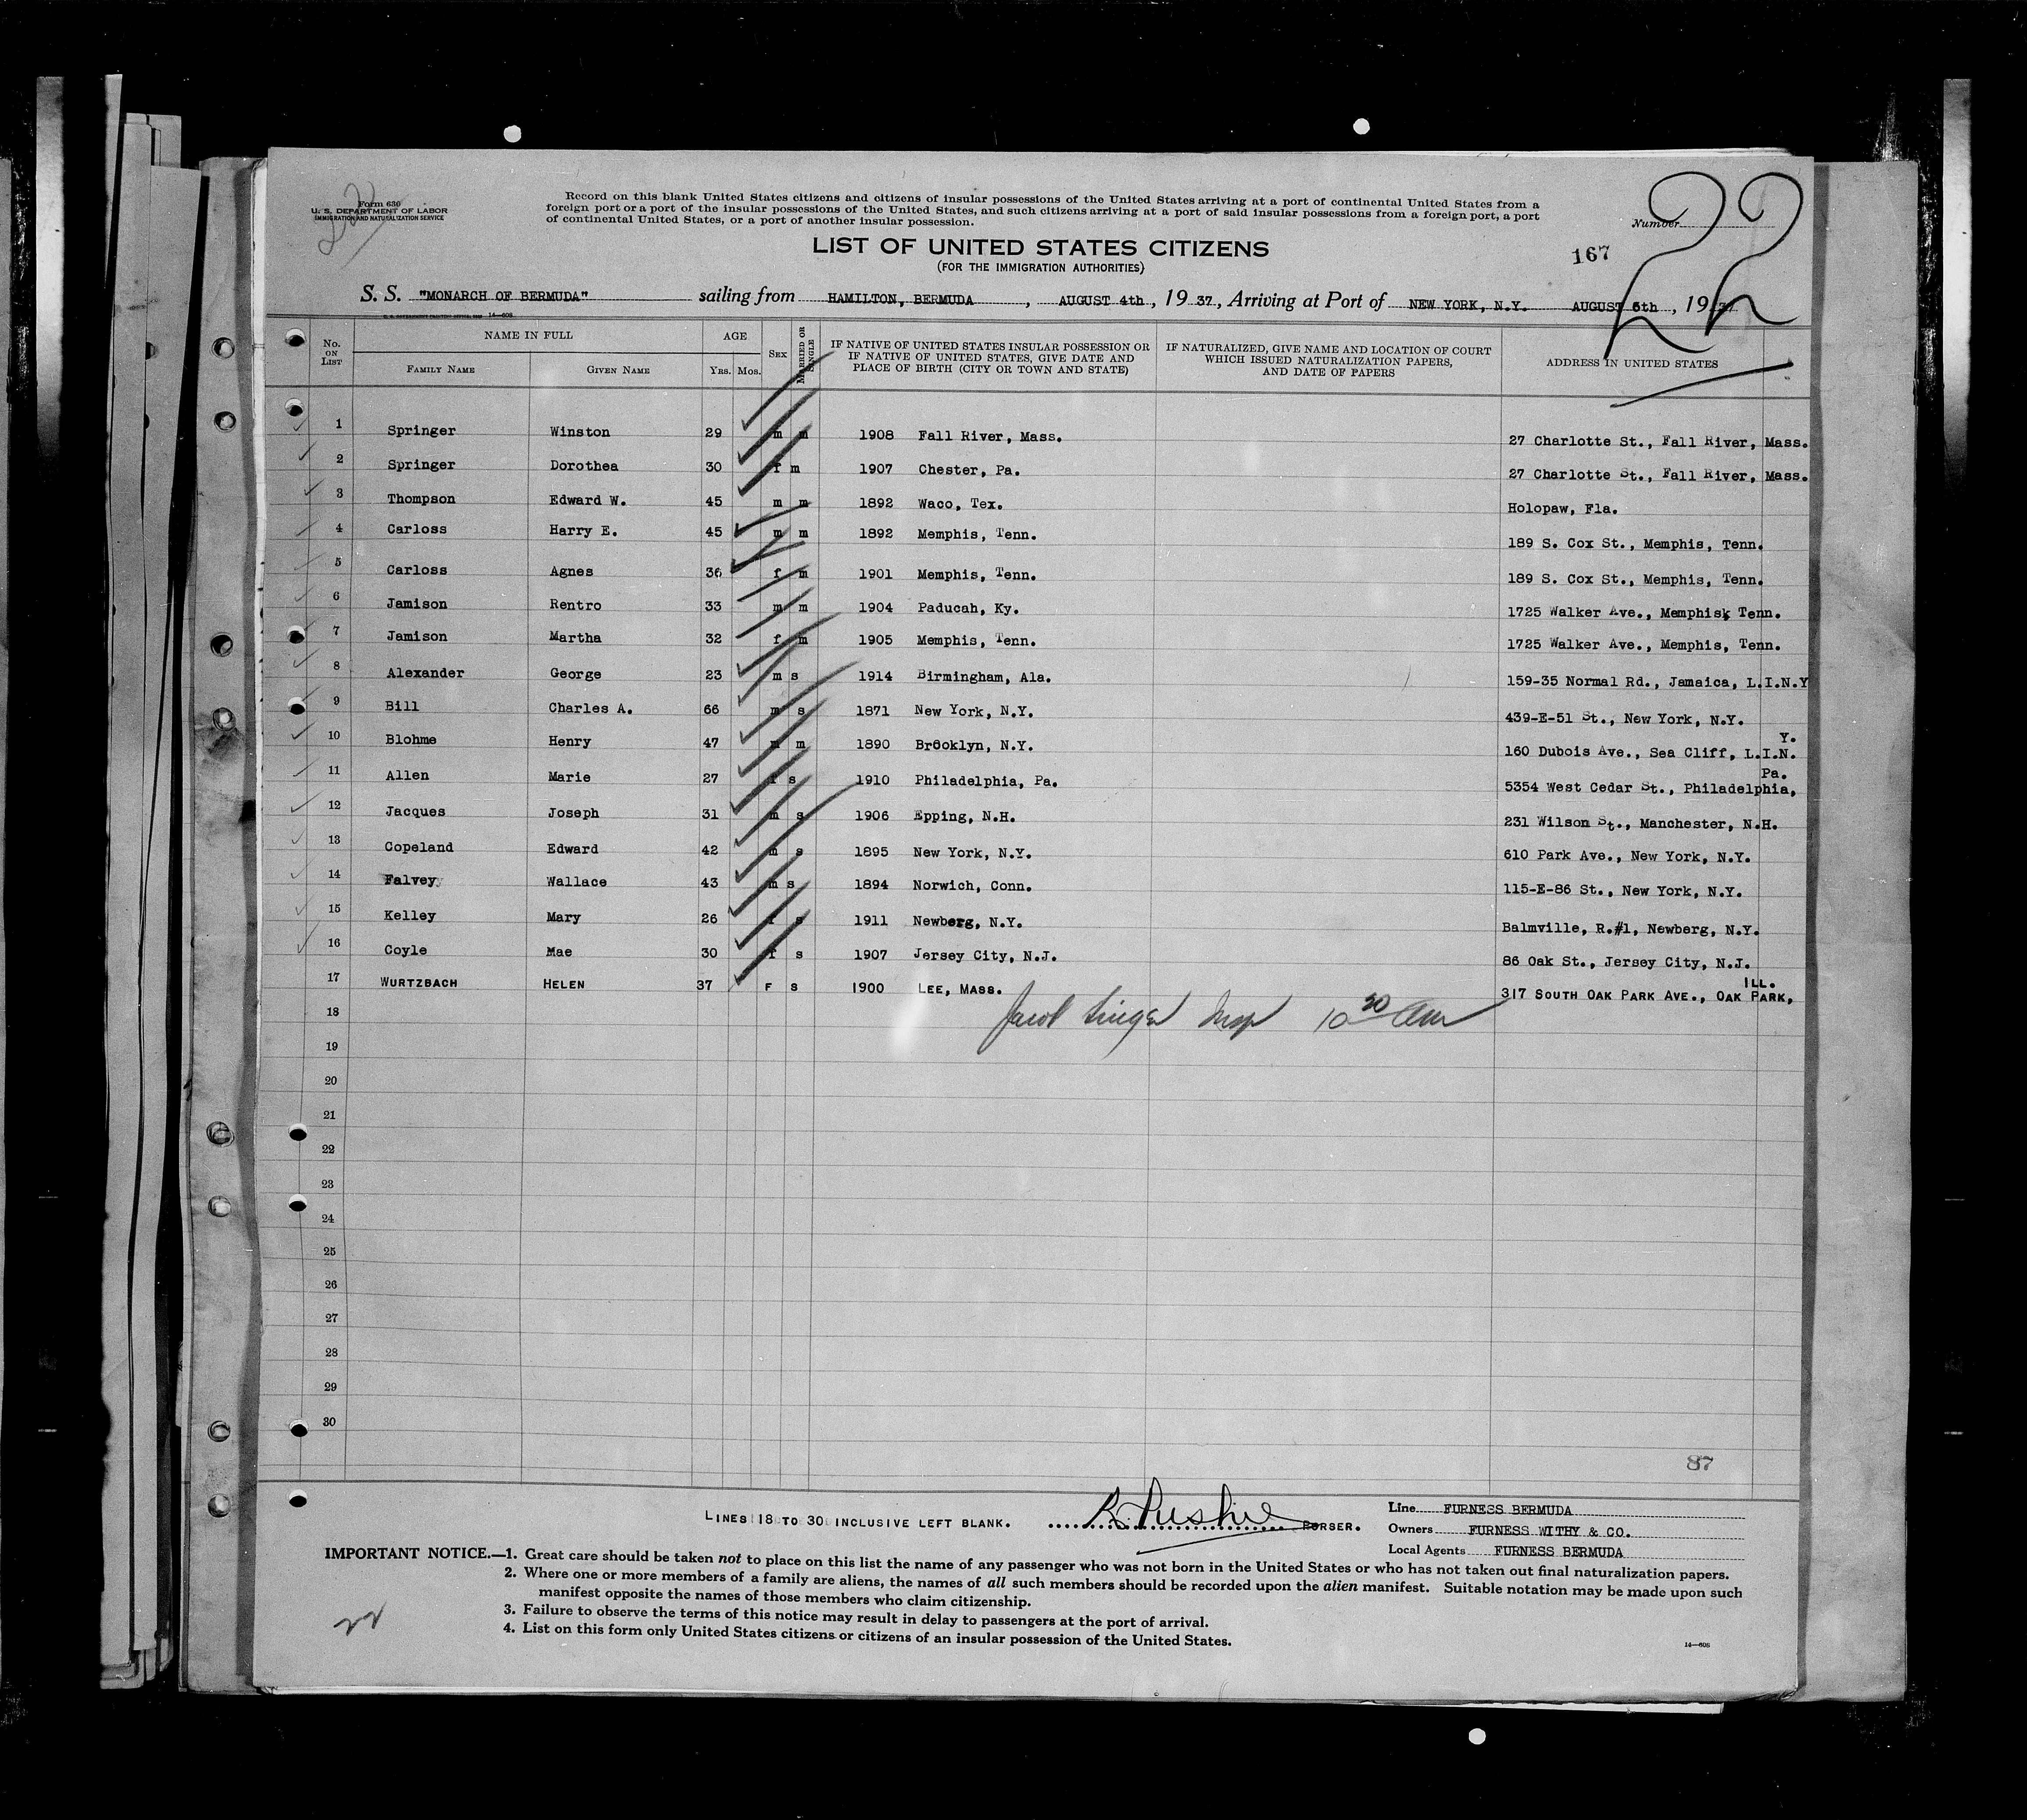 Form 630
U. S. DEPARTMENT OF LABOR
IMMIGRATION AND NATURALIZATION SERVICE
22
Record on this blank United States citizens and citizens of insular possessions of the United States arriving at a port of continental United States from a
foreign port or a port of the insular possessions of the United States, and such citizens arriving at a port of said insular possessions from a foreign port, a port
of continental United States, or a port of another insular possession.
Number 22
LIST OF UNITED STATES CITIZENS
(FOR THE IMMIGRATION AUTHORITIES)
167
S. S. "MONARCH OF BERMUDA" sailing from HAMILTON, BERMUDA, AUGUST 4th, 19 37, Arriving at Port of NEW YORK, N.Y. AUGUST 6th, 19 37
14—608
No. ON LIST NAME IN FULL AGE SEX MARRIED OR SINGLE IF NATIVE OF UNITED STATES INSULAR POSSESSION OR IF NATIVE OF UNITED STATES, GIVE DATE AND PLACE OF BIRTH (CITY OR TOWN AND STATE) IF NATURALIZED, GIVE NAME AND LOCATION OF COURT WHICH ISSUED NATURALIZATION PAPERS, AND DATE OF PAPERS ADDRESS IN UNITED STATES
FAMILY NAME GIVEN NAME YRS. MOS.
1 Springer Winston 29 m m 1908 Fall River, Mass. 27 Charlotte St., Fall River, Mass.
2 Springer Dorothea 30 f m 1907 Chester, Pa. 27 Charlotte St., Fall River, Mass.
3 Thompson Edward W. 45 m m 1892 Waco, Tex. Holopaw, Fla.
4 Carloss Harry E. 45 m m 1892 Memphis, Tenn. 189 S. Cox St., Memphis, Tenn.
5 Carloss Agnes 36 f m 1901 Memphis, Tenn. 189 S. Cox St., Memphis, Tenn.
6 Jamison Rentro 33 m m 1904 Paducah, Ky. 1725 Walker Ave., Memphisk Tenn.
7 Jamison Martha 32 f m 1905 Memphis, Tenn. 1725 Walker Ave., Memphis, Tenn.
8 Alexander George 23 m s 1914 Birmingham, Ala. 159-35 Normal Rd., Jamaica, L.I.N.Y
9 Bill Charles A. 66 m s 1871 New York, N.Y. 439-E-51 St., New York, N.Y.
10 Blohme Henry 47 m m 1890 Brooklyn, N.Y. 160 Dubois Ave., Sea Cliff, L.I.N. Y.
11 Allen Marie 27 f s 1910 Philadelphia, Pa. 5354 West Cedar St., Philadelphia, Pa.
12 Jacques Joseph 31 m s 1906 Epping, N.H. 231 Wilson St., Manchester, N.H.
13 Copeland Edward 42 m s 1895 New York, N.Y. 610 Park Ave., New York, N.Y.
14 Falvey Wallace 43 m s 1894 Norwich, Conn. 115-E-86 St., New York, N.Y.
15 Kelley Mary 26 f s 1911 Newberg, N.Y. Balmville, R.#1, Newberg, N.Y.
16 Coyle Mae 30 f s 1907 Jersey City, N.J. 86 Oak St., Jersey City, N.J.
17 WURTZBACH HELEN 37 F S 1900 LEE, MASS. 317 SOUTH OAK PARK AVE., OAK PARK, ILL.
18 Jacob Singer Insp 10 30 am
19
20
21
22
23
24
25
26
27
28
29
30
87
LINES 18 TO 30 INCLUSIVE LEFT BLANK. PURSER.
Line FURNESS BERMUDA
Owners FURNESS WITHY & CO.
Local Agents FURNESS BERMUDA
IMPORTANT NOTICE.—1. Great care should be taken not to place on this list the name of any passenger who was not born in the United States or who has not taken out final naturalization papers.
2. Where one or more members of a family are aliens, the names of all such members should be recorded upon the alien manifest. Suitable notation may be made upon such
manifest opposite the names of those members who claim citizenship.
3. Failure to observe the terms of this notice may result in delay to passengers at the port of arrival.
4. List on this form only United States citizens or citizens of an insular possession of the United States.
22
14—608